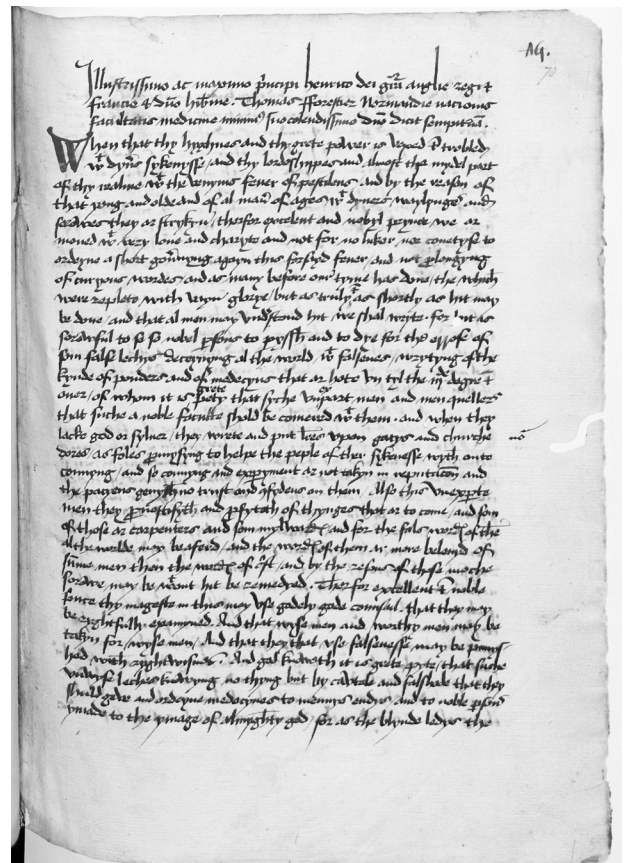 19.
70
Illustrissimo ac maximo principi henrico dei gra anglie regi &
francie & dno hibnie. Thomas fforestier Normandie nacionis
facultatis medicine minimus suo colendissimo dno dicit
When that thy hyghnes and thy grete power is vexed & trobled
wt dyuers sykenysse / and thy lordshyppes and almost the mydel part
of thy realme wt the venyms feuer of pestilens / and by the reason of
that yong and olde and of al maner of ages wt dyuers and
they ar / therfor excelent and nobyl prynce we ar
moued wt very loue and charyte and not for no luker / nor couetyse to
ordeyne a short gouernyng agayn this forseyd feuer / and not plongyng
of curyous wordes / and as many before our tyme has done / the which
were repleto with vayn glorye / but as truly as shortly as hit may
be done / and that al men may vnderstond hit we shal wryte. for hit is
soroful to se so nobel persons to and to dye for the of
som false lechys deceyuyng al the world wt falsenes / wrytyng of the
kynde of pouders and of medecyns that ar hote vn tyl the iiij degre &
ouer / of whom it is grete pety that syche vnexpert men and men quellers
that suche a noble faculte shold be comered wt them. and when they
lacke god or syluer / they wrete and put lres vpon gatys and chirche
dores / as foles promysyng to helpe the peple of ther sykenesse wyth onto
connyng / and so connyng and experyment ar not takyn in reputacon and
the pacyens no trust and on them. Also this vnexperte
men they pronostifyth and of thynges that ar to come / and som
of those ar carpenters and som / and for the fals wordes of the
al the worlde may be aferd / and the wordes of them ar more beleuid of
sume men then the wordes of / and by the reson of these meche
sorowe may be wont hit be remedyed. Therfor excellent & noble
prince thy mageste in this may vse godely gode counsail. that they may
be rightfully examyned. And that wyse men and worthy men may be
takyn for wyse men / And that they that vse falsenesse may be punys-
hed with ryghtwisnes. And god knowth it is grete pyte / that suche
vnwyse leches knowyng no thyng but by and falshede that they
shuld geue and ordeyne medecynes to mennys endys and to noble persons
ymade to the ymage of almyghty god / for as the blynde ledys the